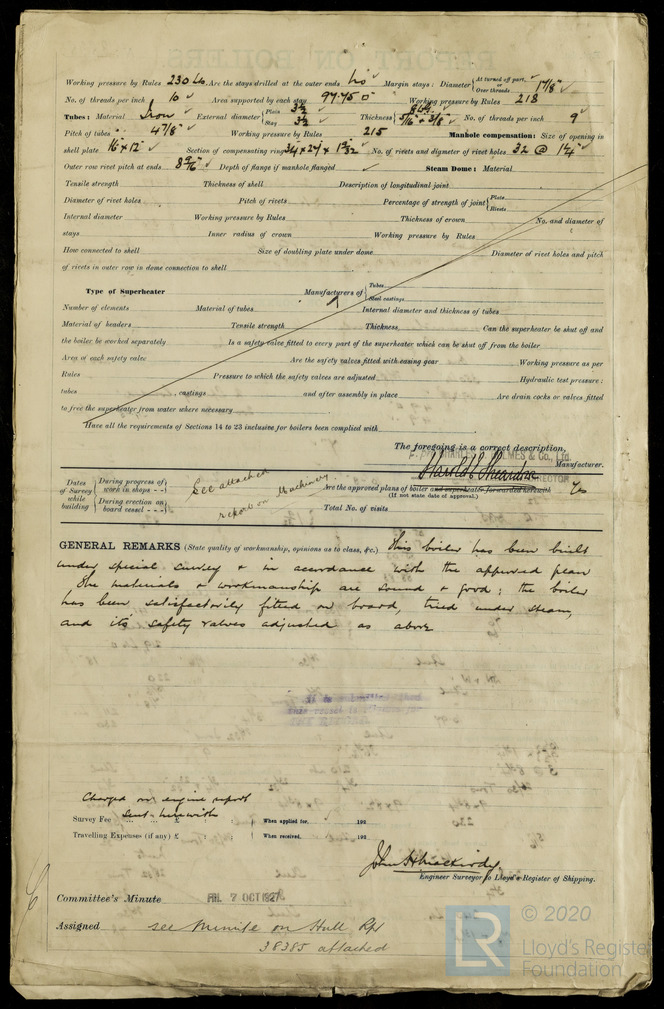 Working pressure by Rules 230 lb. Are the stays drilled at the outer ends No Margin stays: Diameter { At turned off part, or Over threads 1 7/8"
No. of threads per inch 10 Area supported by each stay 97.75 □" Working pressure by Rules 218
Tubes: Material Iron External diameter { Plain 3 1/2 Stay 3 1/2 Thickness { 5/16 + 3/8" No. of threads per inch 9
Pitch of tubes 4 7/8" Working pressure by Rules 215 Manhole compensation: Size of opening in
shell plate 16" x 12" Section of compensating ring No. of rivets and diameter of rivet holes 32 @ 1 1/4"
Outer row rivet pitch at ends 8 9/16" Depth of flange if manhole flanged Steam Dome: Material
Tensile strength Thickness of shell Description of longitudinal joint
Diameter of rivet holes Pitch of rivets Percentage of strength of joint { Plate Rivets
Internal diameter Working pressure by Rules Thickness of crown No. and diameter of
stays Inner radius of crown Working pressure by Rules
How connected to shell Size of doubling plate under dome Diameter of rivet holes and pitch
of rivets in outer row in dome connection to shell
Type of Superheater Manufacturers of { Tubes Steel castings
Number of elements Material of tubes Internal diameter and thickness of tubes
Material of headers Tensile strength Thickness Can the superheater be shut off and
the boiler be worked separately Is a safety valve fitted to every part of the superheater which can be shut off from the boiler
Area of each safety valve Are the safety valves fitted with easing gear Working pressure as per
Rules Pressure to which the safety valves are adjusted Hydraulic test pressure:
tubes castings and after assembly in place Are drain cocks or valves fitted
to free the superheater from water where necessary
Have all the requirements of Sections 14 to 23 inclusive for boilers been complied with
The foregoing is a correct description,
HOLMES & Co., Ltd.
Manufacturer.
DIRECTOR
Dates of Survey while building { During progress of work in shops - - During erection on board vessel - - -
See attached
report on Machinery.
Are the approved plans of boiler and superheater forwarded herewith Yes
(If not state date of approval.)
Total No. of visits
GENERAL REMARKS (State quality of workmanship, opinions as to class, &c.) This boiler has been built
under special survey & in accordance with the approved plan
The materials & workmanship are sound & good; the boiler
has been satisfactorily fitted on board, tried under steam,
and its safety valves adjusted as above
Charged on engine report
sent herewith
Survey Fee ... ... £ : : When applied for, 192
Travelling Expenses (if any) £ : : When received, 192
Engineer Surveyor to Lloyd's Register of Shipping.
Committee's Minute FRI. 7 OCT 1927
Assigned see Minute on Hull Rpt
38385 attached
© 2020
Lloyd's Register
Foundation